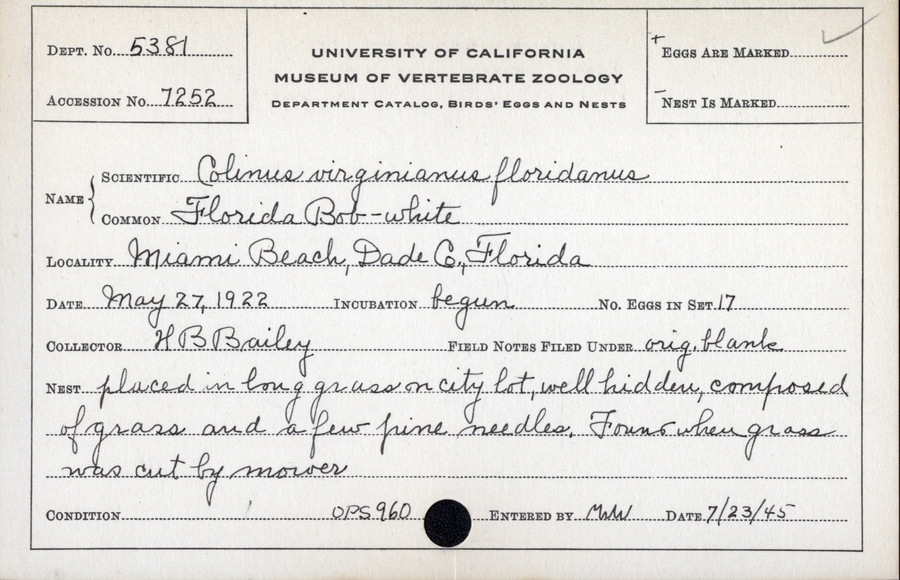 DEPT. No. 5381
ACCESSION No. 7252
UNIVERSITY OF CALIFORNIA
MUSEUM OF VERTEBRATE ZOOLOGY
DEPARTMENT CATALOG, BIRDS' EGGS AND NESTS
+ EGGS ARE MARKED ✓
- NEST IS MARKED
NAME
SCIENTIFIC Colinus virginianus floridanus
COMMON Florida Bob-white
LOCALITY Miami Beach, Dade Co., Florida
DATE May 27, 1922 INCUBATION begun NO. EGGS IN SET 17
COLLECTOR H B Bailey FIELD NOTES FILED UNDER orig. blank
NEST placed in long grass on city lot, well hidden, composed
of grass and a few pine needles. Found when grass
was cut by mower
CONDITION OPS 960 ENTERED BY DATE 7/23/45